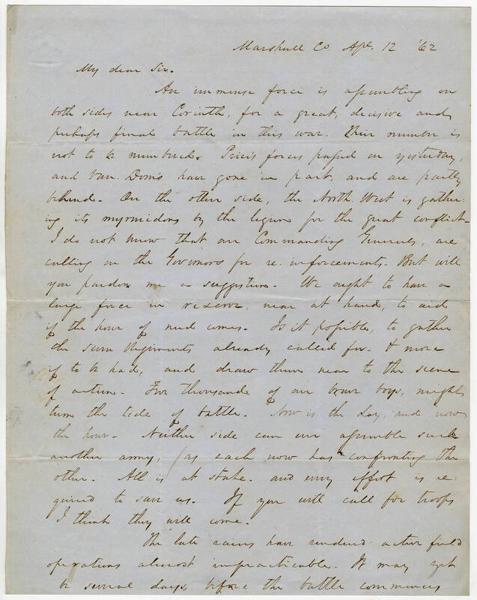 Marshall Co Apl. 12 '62
My dear Sir.
An immense force is assembling on
both sides near Corinth, for a great, decisive and,
perhaps final battle in this war. Their number is
not to be numbered. Price's forces passed on yesterday,
and Van Dorn's have gone in part, and are partly
behind. On the other side, the North West is gather-
ing its myrmidons by the legions for the great conflict.
I do not know that our Commanding Generals, are
calling on the Governors for re-inforcements. But will
you pardon me a suggestion. We ought to have a
large force in reserve, near at hand, to aid
if the hour of need comes. Is it possible, to gather
the seven Regiments already called for & more
if to be had, and draw them near to the scene
of action. Five thousands of our brave boys, might
turn the tide of battle. Now is the day, and now
the hour. Neither side can ever assemble such
another army, (as each now has confronting the
other. All is at stake, and every effort is re-
quired to save us. If you will call for troops
I think they will come.
The late rains have rendered active field
operations almost impracticable. It may yet
be several days, before the battle commences